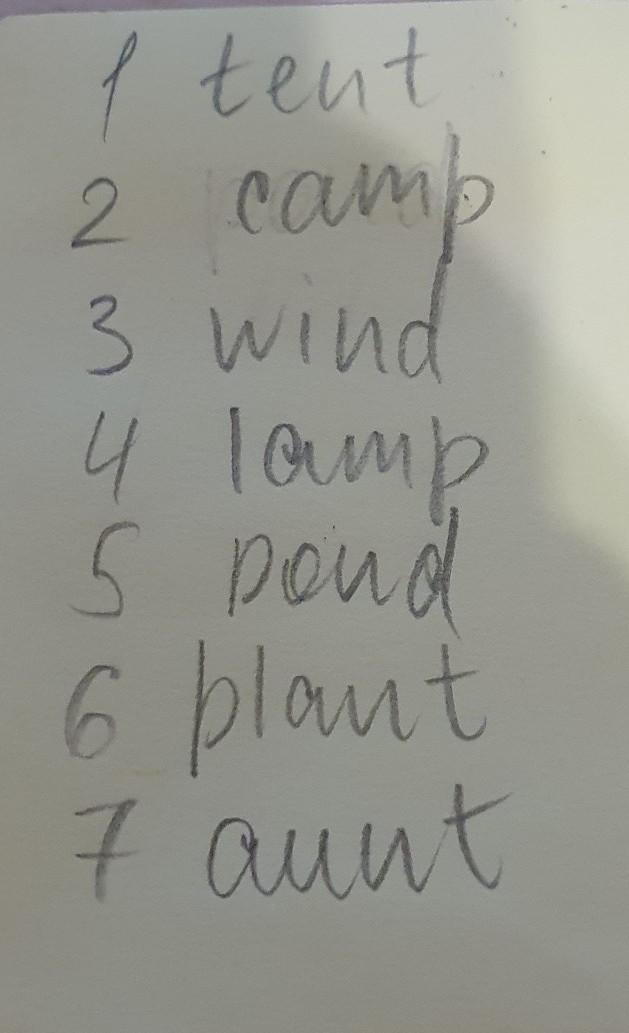 1 tent
2 camp
3 wind
4 lamp
5 pond
6 plant
7 aunt